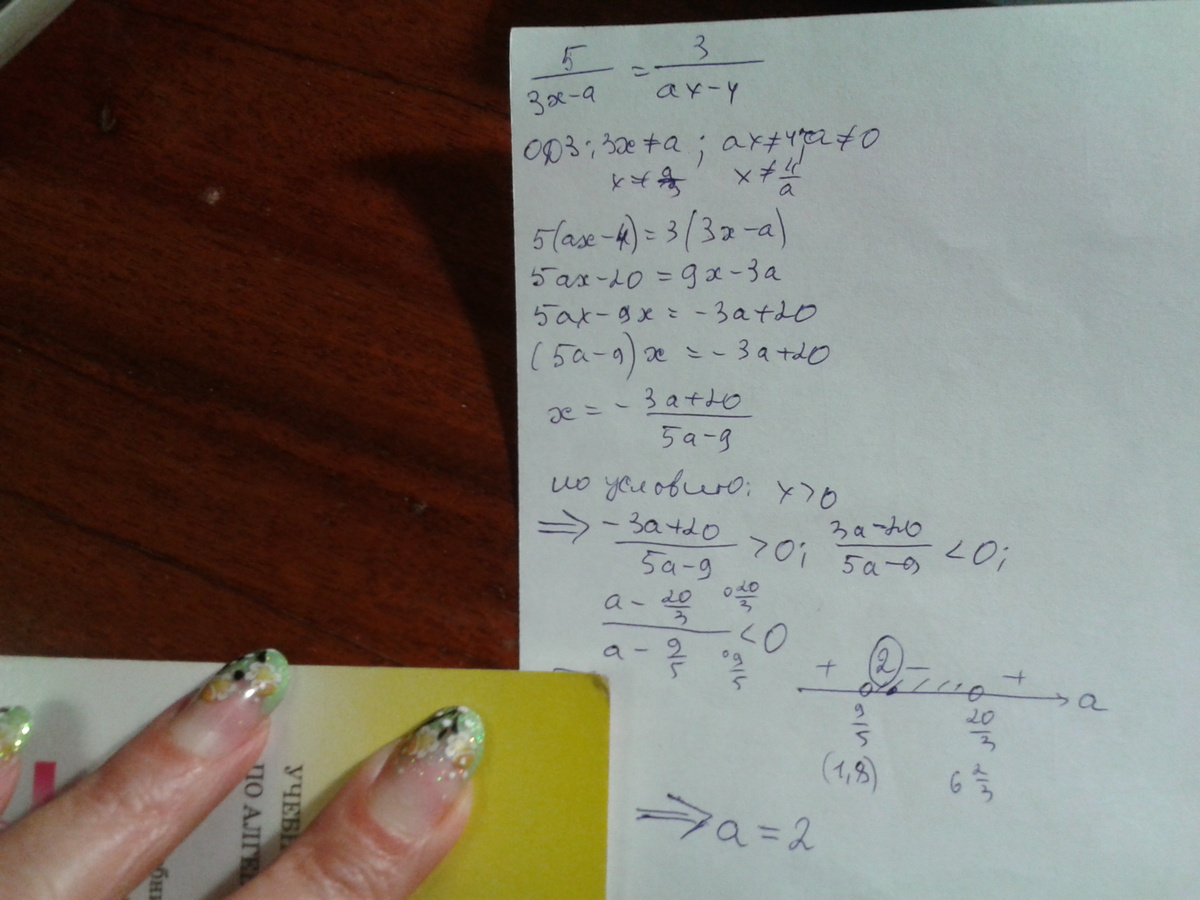 5/(3x-a) = 3/(ax-4)
ОДЗ: 3x≠a; ax≠4; a≠0
x≠a/3 x≠4/a
5(ax-4)=3(3x-a)
5ax-20=9x-3a
5ax-9x=-3a+20
(5a-9)x=-3a+20
x=-(3a+20)/(5a-9)
по условию: x>0
⟹ (-3a+20)/(5a-9) >0; (3a-20)/(5a-9) <0;
(a-20/3)/(a-9/5) <0 0 20/3 0 9/5
+ 2 - + a
9/5 20/3
(1,8) 6 2/3
⟹ a=2
ПО АЛГЕ